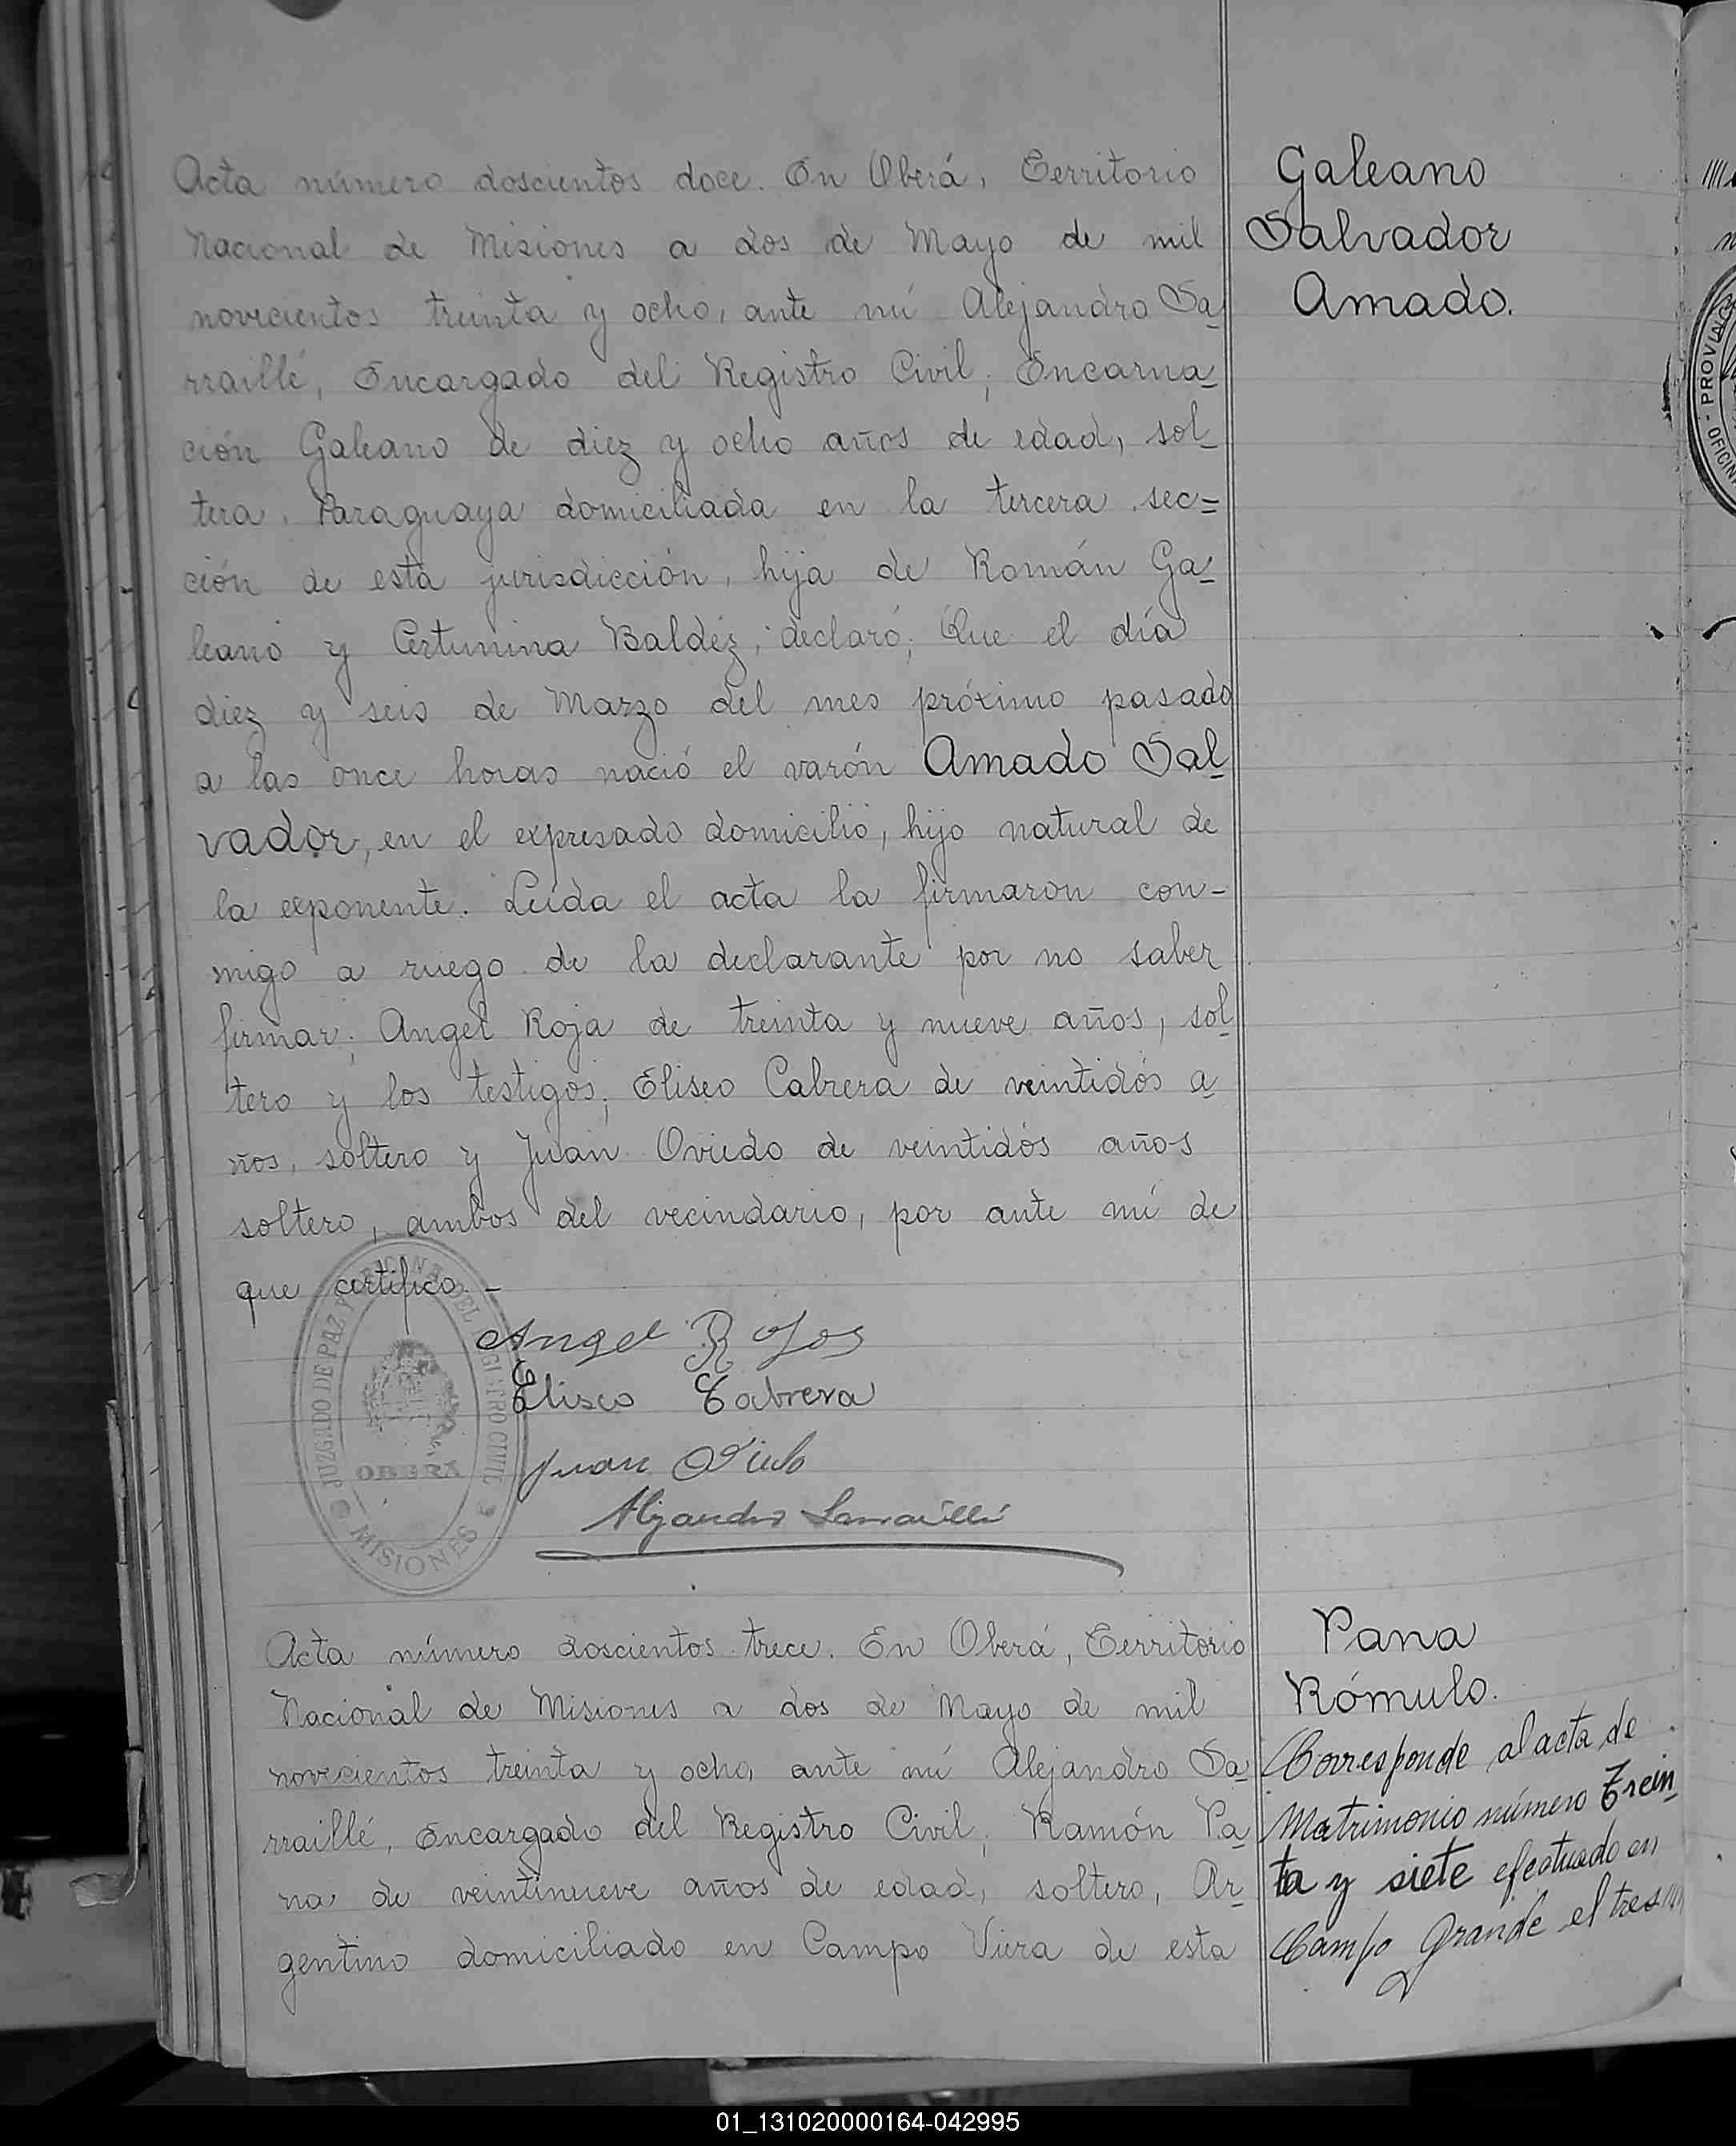 Acta número doscientos doce. En Oberá, Territorio
Nacional de Misiones a dos de Mayo de mil
novecientos treinta y ocho, ante mí Alejandro Sa-
rraillé, Encargado del Registro Civil; Encarna-
ción Galeano de diez y ocho años de edad, sol-
tera, Paraguaya domiciliada en la tercera sec=
ción de esta jurisdicción, hija de Román Ga-
leano y Baldéz, declaró; Que el día
diez y seis de Marzo del mes próximo pasado
a las once horas nació el varón Amado Sal-
vador, en el expresado domicilio, hijo natural de
la exponente. Leída el acta la firmaron con-
migo a ruego de la declarante por no saber
firmar; Angel Roja de treinta y nueve años, sol-
tero y los testigos; Eliseo Cabrera de veintidós a-
ños, soltero y Juan Oviedo de veintidós años
soltero, ambos del vecindario, por ante mí de
que certifico.-
Galeano
Salvador
Amado.
Angel Rojas
Eliseo Cabrera
Juan Oviedo
Alejandro Sarraillé
JUZGADO DE PAZ Y OFICINA DEL REGISTRO CIVIL
OBERA
MISIONES
Acta número doscientos trece. En Oberá, Territorio
Nacional de Misiones a dos de Mayo de mil
novecientos treinta y ocho, ante mí Alejandro Sa-
rraillé, Encargado del Registro Civil; Ramón Pa-
na de veintinueve años de edad, soltero, Ar-
gentino domiciliado en Campo Viera de esta
Pana
Rómulo.
Corresponde al acta de
Matrimonio número Trein-
ta y siete efectuado en
Campo Grande el tres
PROVINCIA
OFICINA
01_131020000164-042995